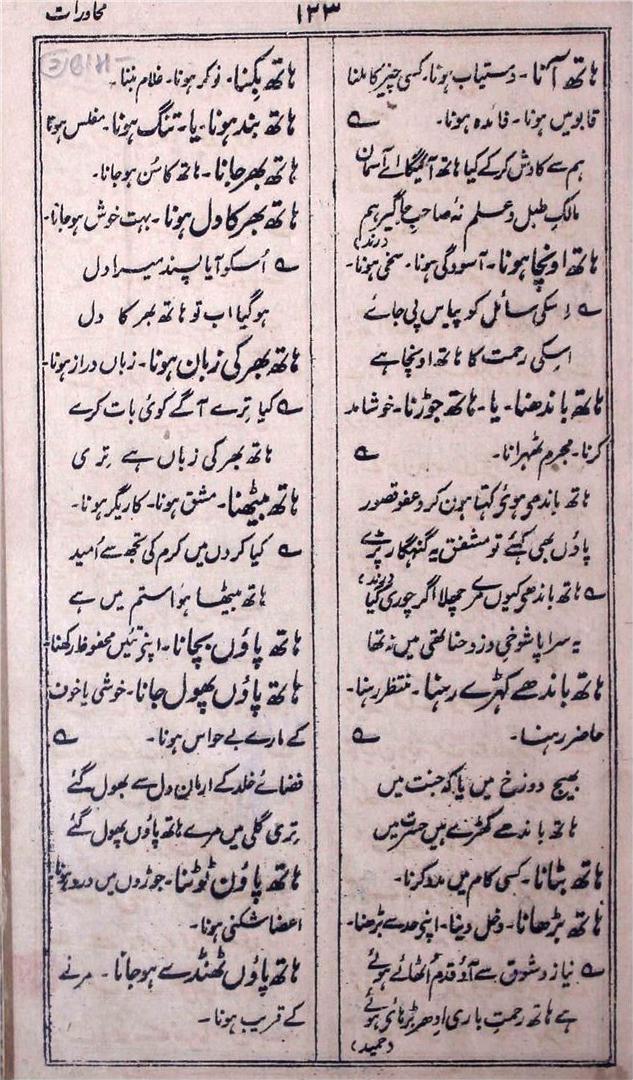 محاورات
۱۲۳
ہاتھ آنا۔ دستیاب ہونا۔ کسی چیز کا ملنا
قابو میں ہونا۔ فائدہ ہونا۔ ؎
ہم سے کاوش کر کے کیا ہاتھ آئیگا اے آسمان
مالک طبل و علم نہ صاحب جاگیر ہم
(رند)
ہاتھ اونچا ہونا۔ آسودگی ہونا۔ سخی ہونا۔
؎ اسکی سائل کو پیاس پی جائے
اسکی رحمت کا ہاتھ اونچا ہے
ہاتھ باندھنا۔ یا۔ ہاتھ جوڑنا۔ خوشامد
کرنا۔ مجرم ٹھہرانا۔ ؎
ہاتھ باندھی ہوئی کہتا ہون کرو عفو قصور
پاؤں بھی کہئے تو مشفق یہ گنہگار پڑے
(رند)
؎ ہاتھ باندھی کیوں مرے چھلا اگر چوری گیا
یہ سراپا شوخیِ دزد حنا تھی میں نہ تھا
ہاتھ باندھے کہڑے رہنا۔ منتظر رہنا۔
حاضر رہنا۔ ؎
بھیج دوزخ میں یا کہ جنت میں
ہاتھ باندھے کھڑے ہیں حسرت میں
ہاتھ بٹانا۔ کسی کام میں مدد کرنا۔
ہاتھ بڑھانا۔ دخل دینا۔ اپنی حد سے بڑھنا۔
؎ نیاز و شوق سے آؤ قدم اُٹھائے ہوئے
ہے ہاتھ رحمتِ باری ادھر بڑہائی ہوئے
(حمید)
ہاتھ بِکنا۔ نوکر ہونا۔ غلام بننا۔
ہاتھ بند ہونا۔ یا۔ تنگ ہونا۔ مفلس ہونا
ہاتھ بھر جانا۔ ہاتھ کا سُن ہو جانا۔
ہاتھ بھر کا دل ہونا۔ بہت خوش ہو جانا۔
؎ اُسکو آیا پسند میرا دل
ہو گیا اب تو ہاتھ بھر کا دل
ہاتھ بھر کی زبان ہونا۔ زباں دراز ہونا۔
؎ کیا تِرے آگے کوئی بات کرے
ہاتھ بھر کی زباں ہے تِری
ہاتھ بیٹھنا۔ مشق ہونا۔ کاریگر ہونا۔
؎ کیا کروں میں کرم کی تجھ سے اُمید
ہاتھ بیٹھا ہوا ستم میں ہے
ہاتھ پاؤں بچانا۔ اپنی تئیں محفوظ رکھنا۔
ہاتھ پاؤں پھول جانا۔ خوشی یا خوف
کے مارے بے حواس ہونا۔ ؎
فضائے خلد کے ارمان دل سے بھول گئے
تِری گلی میں مرے ہاتھ پاؤں پھول گئے
ہاتھ پاؤں ٹوٹنا۔ جوڑوں میں درد ہونا۔
اعضا شکنی ہونا۔
ہاتھ پاؤں ٹھنڈے ہو جانا۔ مرنے
کے قریب ہونا۔